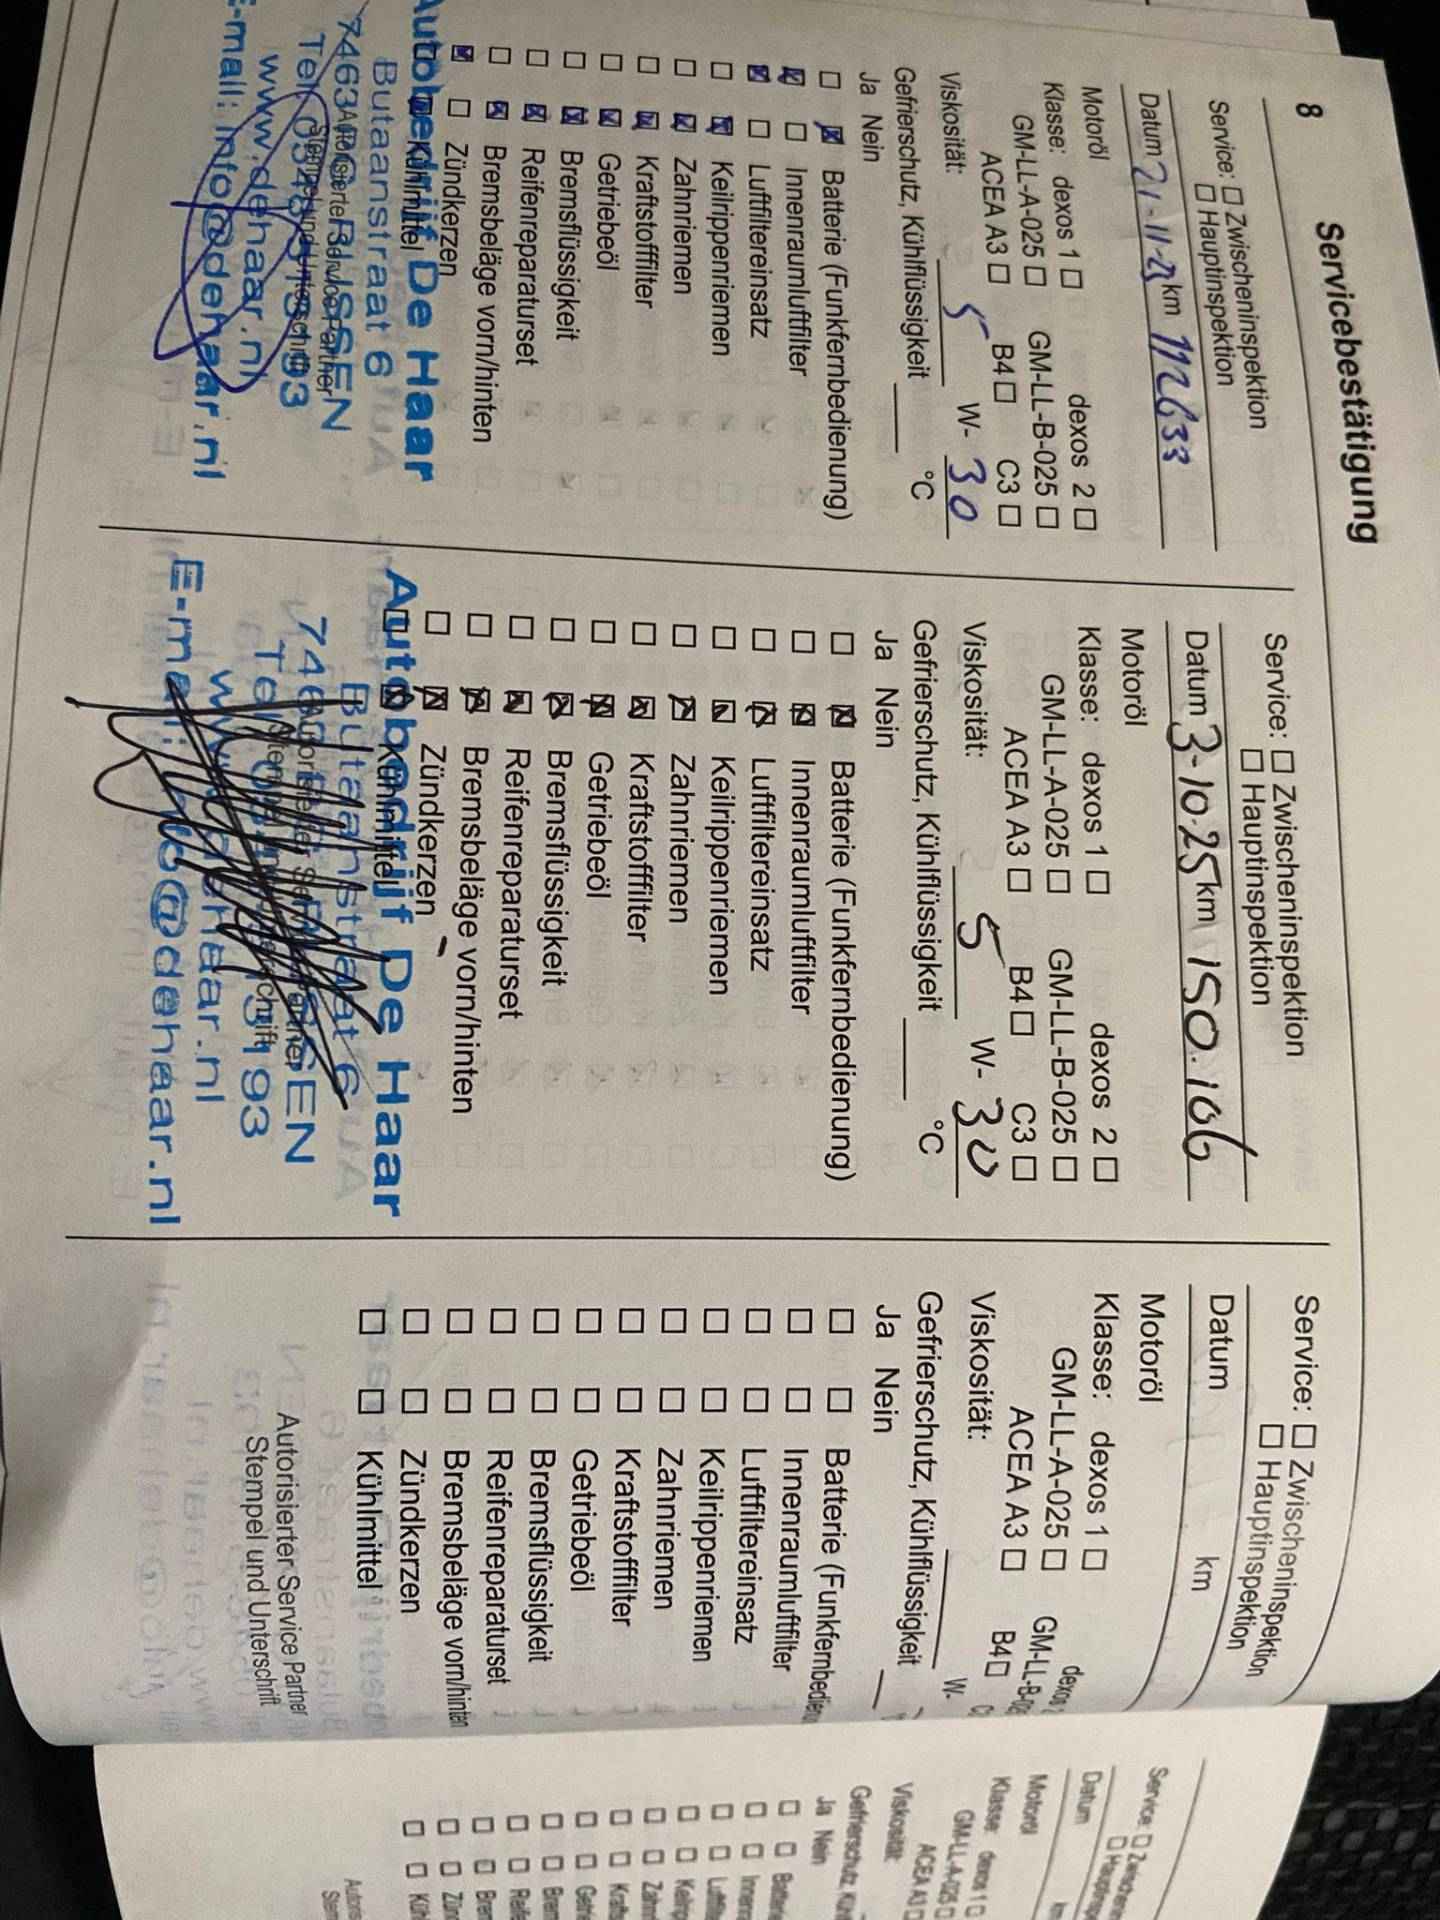 8
Servicebestätigung
Service: Zwischeninspektion
Hauptinspektion
Datum 21-11-23 km 112633
Motoröl
Klasse: dexos 1 dexos 2
GM-LL-A-025 GM-LL-B-025
ACEA A3 B4 C3
Viskosität: 5 W- 30
Gefrierschutz, Kühlflüssigkeit °C
Ja Nein
Batterie (Funkfernbedienung)
Innenraumluftfilter
Luftfiltereinsatz
Keilrippenriemen
Zahnriemen
Kraftstofffilter
Getriebeöl
Bremsflüssigkeit
Reifenreparaturset
Bremsbeläge vorn/hinten
Zündkerzen
Kühlmittel
Autobedrijf De Haar
Butaanstraat 6
Autorisierter Service Partner
Stempel und Unterschrift
www.dehaar.nl
E-mail: info@dehaar.nl
Service: Zwischeninspektion
Hauptinspektion
Datum 3-10-25 km 150.106
Motoröl
Klasse: dexos 1 dexos 2
GM-LL-A-025 GM-LL-B-025
ACEA A3 B4 C3
Viskosität: 5 W- 30
Gefrierschutz, Kühlflüssigkeit °C
Ja Nein
Batterie (Funkfernbedienung)
Innenraumluftfilter
Luftfiltereinsatz
Keilrippenriemen
Zahnriemen
Kraftstofffilter
Getriebeöl
Bremsflüssigkeit
Reifenreparaturset
Bremsbeläge vorn/hinten
Zündkerzen
Kühlmittel
Autobedrijf De Haar
Butaanstraat 6
E-mail: info@dehaar.nl
Service: Zwischeninspektion
Hauptinspektion
Datum km
Motoröl
Klasse: dexos 1 dexos
GM-LL-A-025 GM-LL-B-02
ACEA A3 B4
Viskosität: W-
Gefrierschutz, Kühlflüssigkeit
Ja Nein
Batterie (Funkfernbedien
Innenraumluftfilter
Luftfiltereinsatz
Keilrippenriemen
Zahnriemen
Kraftstofffilter
Getriebeöl
Bremsflüssigkeit
Reifenreparaturset
Bremsbeläge vorn/hinten
Zündkerzen
Kühlmittel
Autorisierter Service Partner
Stempel und Unterschrift
Service: Zwischen
Hauptinsp
Datum
Motoröl
Klasse: dexos 1
GM-LL-A-025
ACEA A3
Viskosität:
Gefrierschutz, Küh
Ja Nein
Batterie
Innenr
Luftfilt
Keilrip
Zahnr
Krafts
Getri
Brem
Reife
Brem
Zünd
Kühl
Autoris
Stem